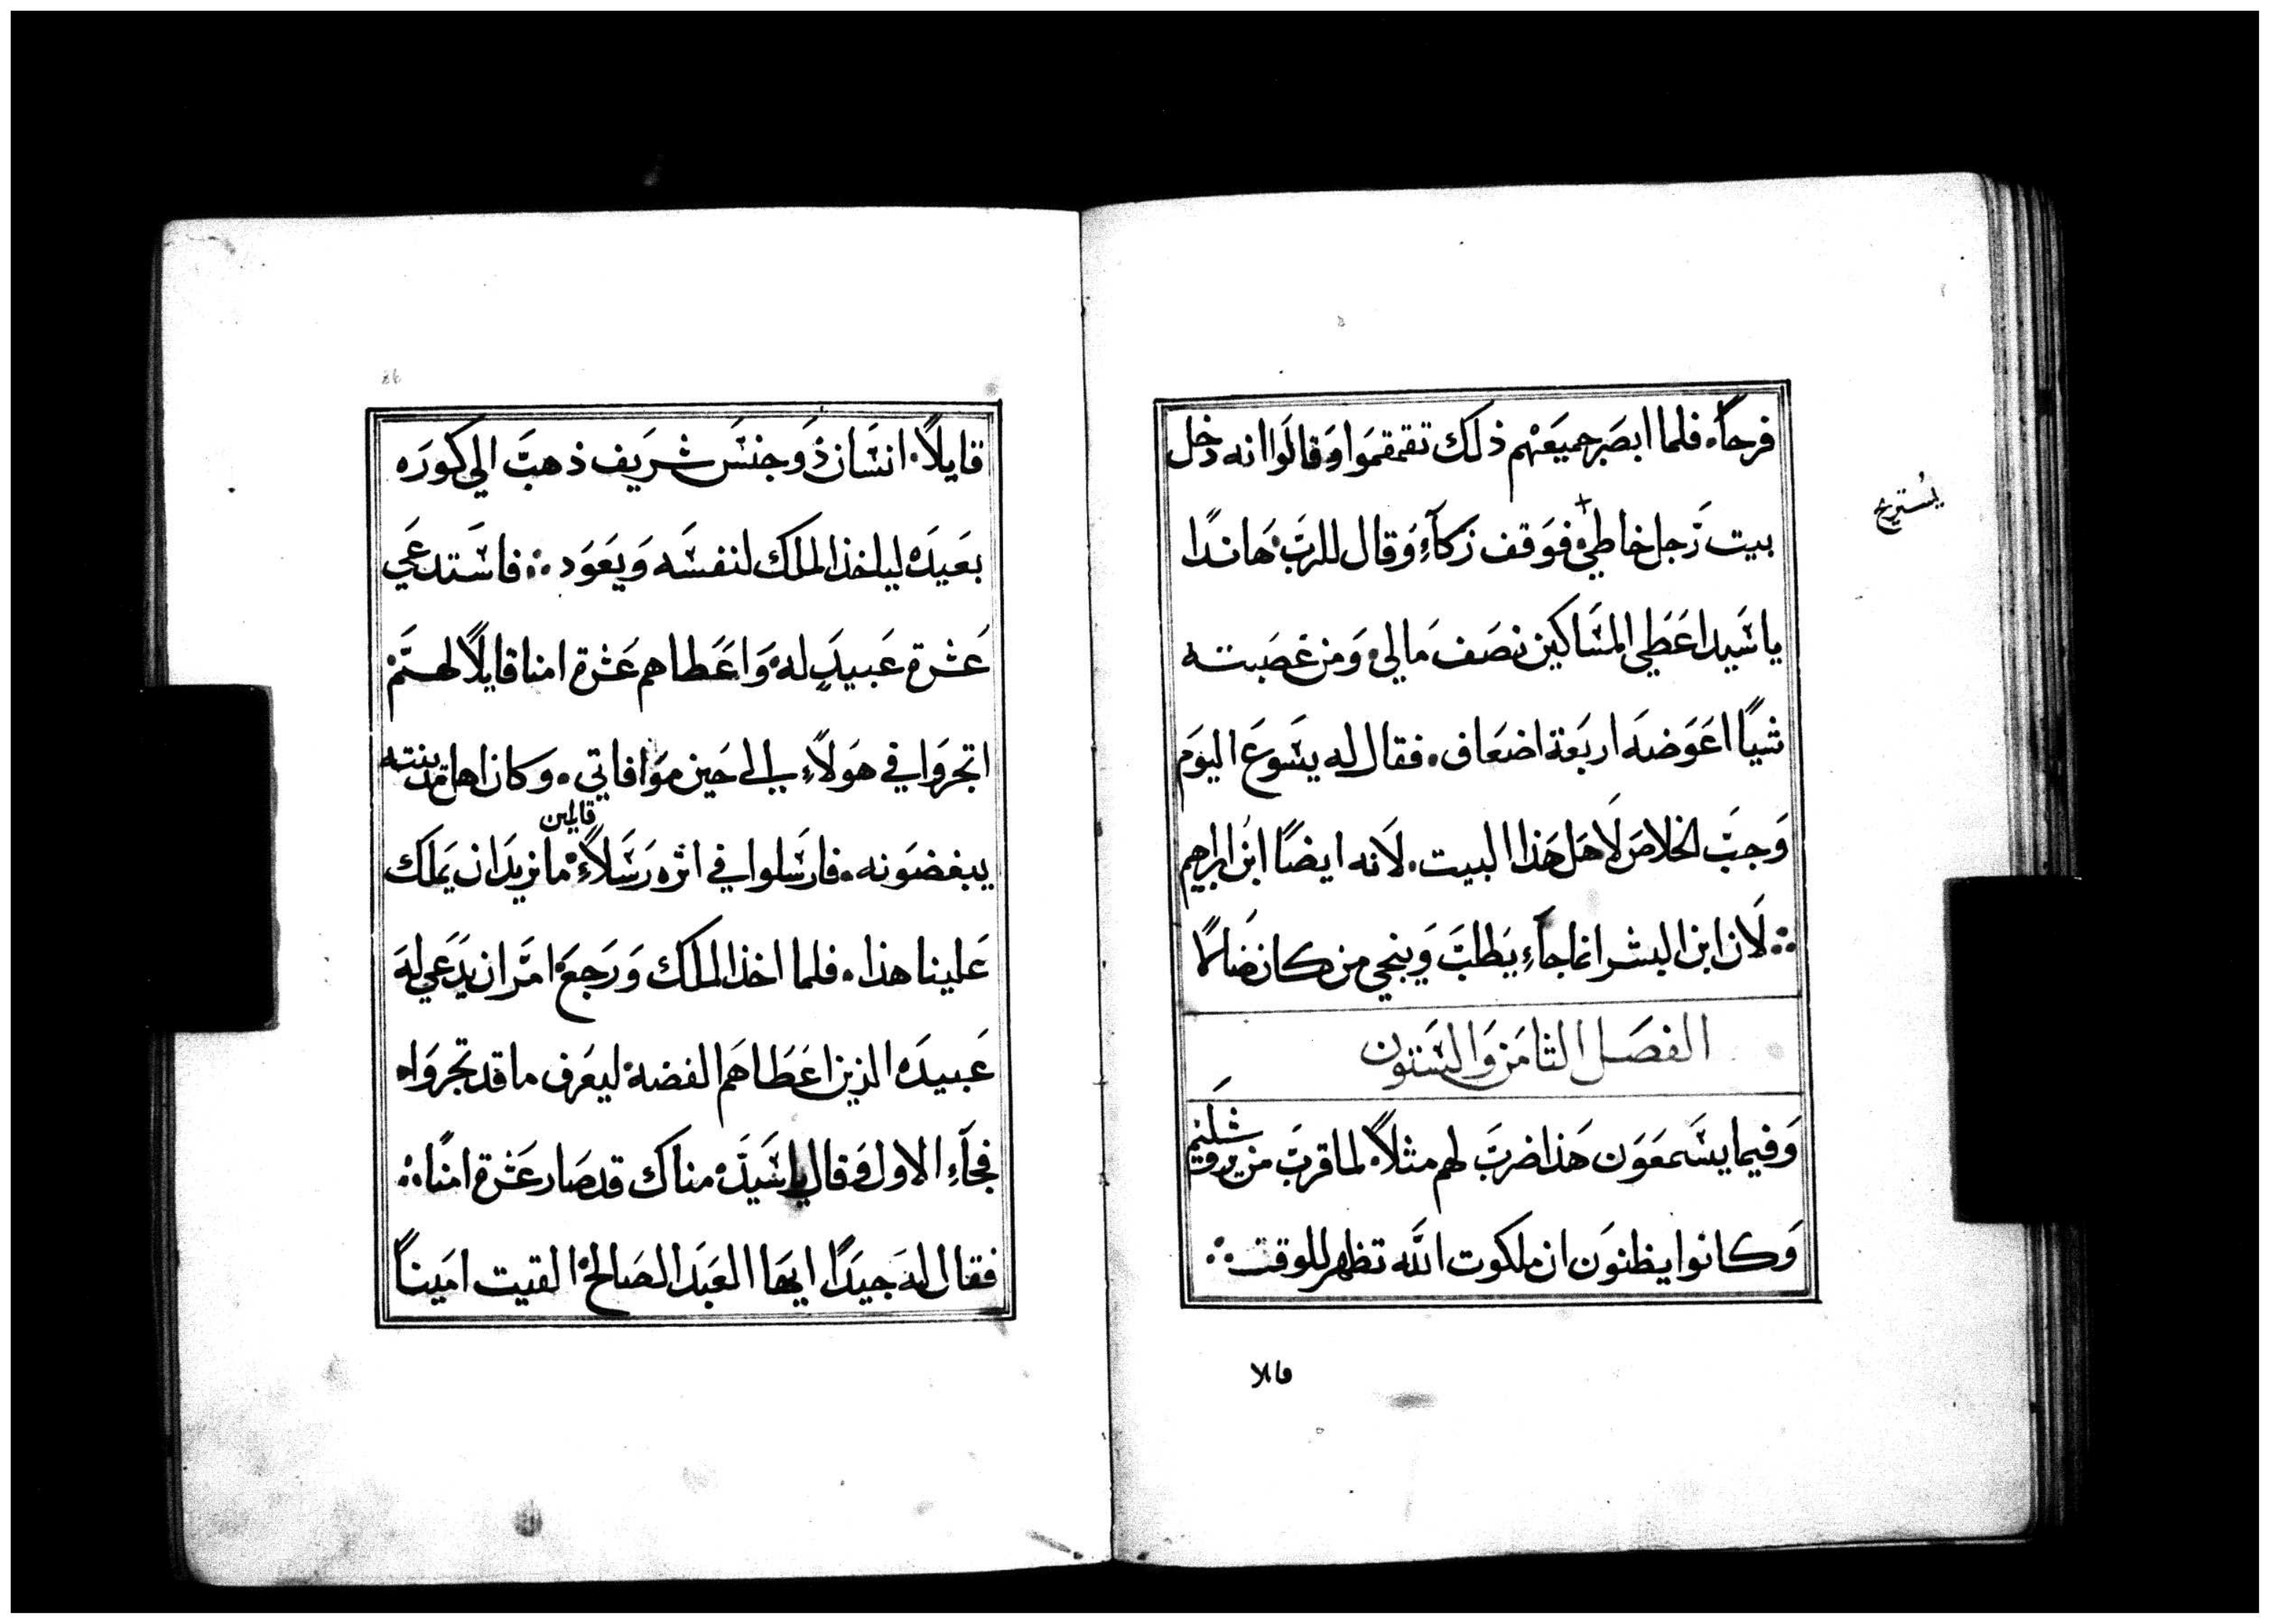 فرحاً. فلما ابصر جميعهم ذلك تقمقموا وقالوا انه دخل
بيت رجل خاطي فوقف زكآء وقال للرب هاندا
يستريح
يا سيد اعطي المساكين نصف مالي ومن غصبته
شياً اعوضه اربعة اضعاف. فقال له يسوع اليوم
وجب الخلاص لاهل هذا البيت. لانه ايضاً ابن ابراهيم
لان ابن البشر انما جآء يطلب وينجي من كان ضالًا
الفصل الثامن والستون
وفيما يسمعون هذا ضرب لهم مثلاً لما قرب من يروشليم
وكانوا يظنون ان ملكوت الله تظهر للوقت
قايلا
قايلاً. انسان ذو جنس شريف ذهب الي كوره
بعيده لياخذ الملك لنفسه ويعود فاستدعي
عشرة عبيدٍ له واعطاهم عشرة امنا قايلاً لهم
اتجروا في هولاء الي حين موافاتي. وكان اهل مدينته
يبغضونه. فارسلوا في اثره رسلاً قايلين ما نريد ان يملك
علينا هذا. فلما اخذ الملك ورجع امر ان يدعي له
عبيده الذين اعطاهم الفضه ليعرف ما قد تجروا
فجآء الاول وقال يا سيده مناك قد صار عشرة امناً
فقال له جيداً ايها العبد الصالح القيت اميناً